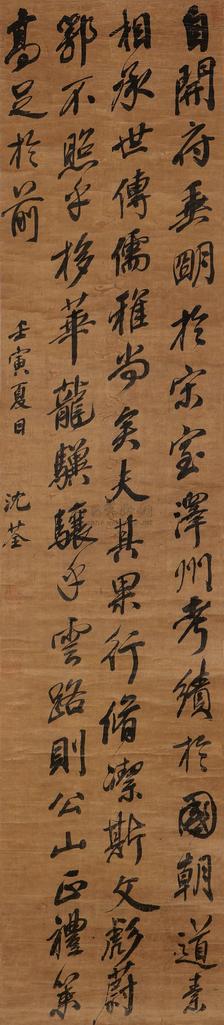 自開府垂明於宋室澤州考績於國朝道素
相承世傳儒雅尚矣夫其果行脩潔斯文彪蔚
鄂不照乎栘華龍驥驤乎雲路則公山正禮策
高足於前
壬寅夏日 沈荃